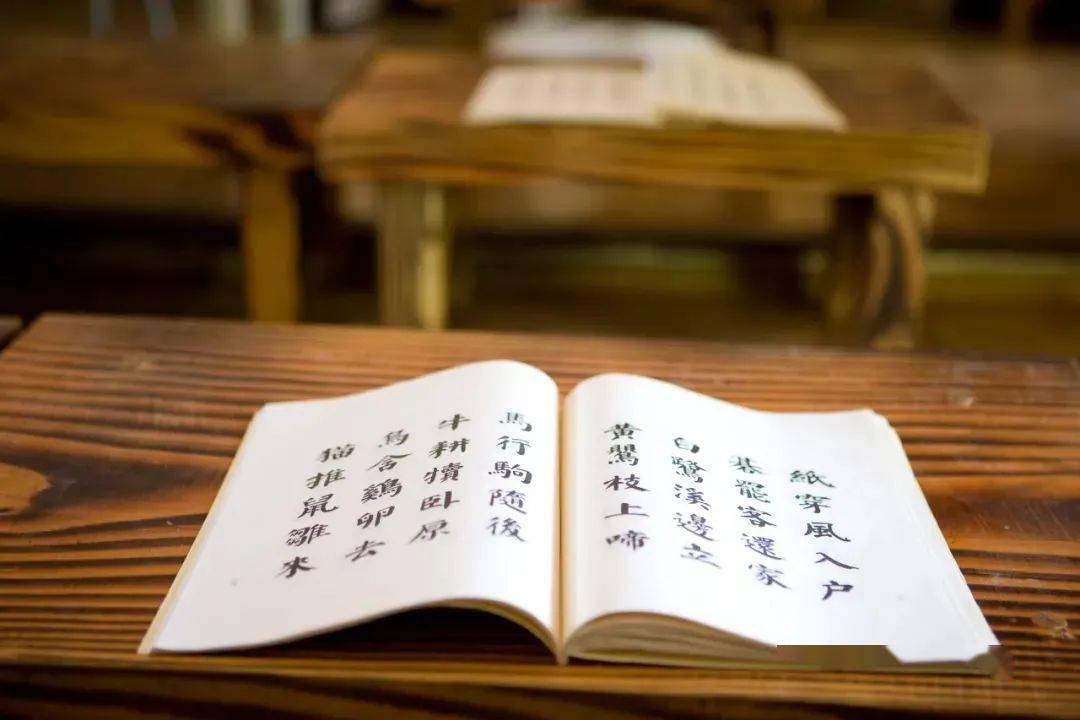 紙穿風入户
棊罷客還家
白鷺溪邊立
黃鸎枝上啼
馬行駒隨後
牛耕犢卧原
烏含鷄卵去
猫推鼠雛來